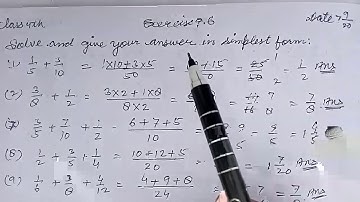 Class 4th Exercise 9.6 Date > 9/20
Solve and give your answer in simplest form:
(1) 1/5 + 3/10 = 1×10+3×5/50 = +15/50 = 25/50 = 1/2 Ans
(2) 3/8 + 1/2 = 3×2+1×8/8×2 = = 14/16 = 7/8
(7) 3/5 + 7/10 + 1/2 = 6+7+5/10 = = = 1 4/5 Ans
(8) 1/2 + 3/5 + 1/4 = 10+12+5/20 = = 1 7/20 Ans
(9) 1/6 + 3/8 + 4/12 = 4+9+8/24 = = 7/8 Ans